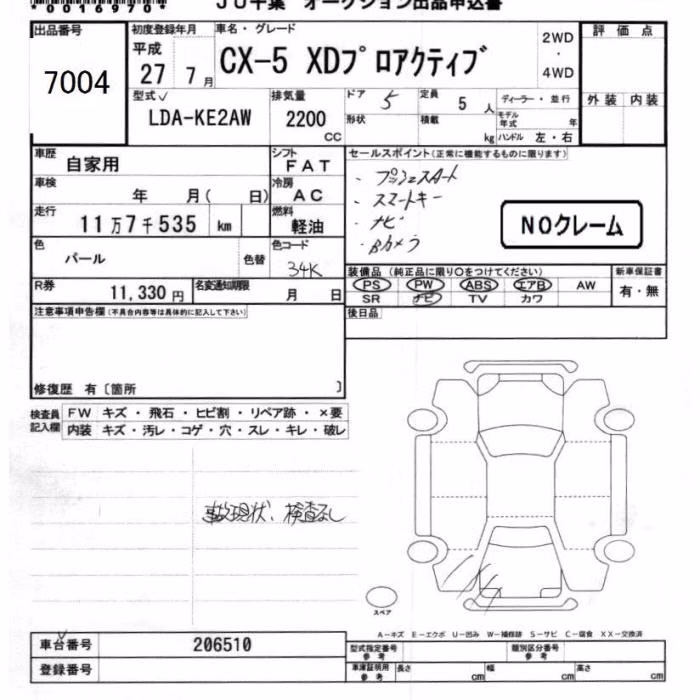 *00016970*
JU千葉 オークション出品申込書
出品番号
7004
初度登録年月
平成
27 7月
車名・グレード
CX-5 XDプロアクティブ
2WD
・
4WD
評価点
外装 内装
型式
LDA-KE2AW
排気量
2200
CC
ドア 5
形状
定員 5 人
積載 kg
ディーラー・並行
モデル年式 年
ハンドル 左・右
車歴 自家用
シフト FAT
車検 年 月( 日)
冷房 AC
走行 11万7千535 km
燃料 軽油
色 パール 色替
色コード 34K
R券 11,330円
名変通知期限 月 日
セールスポイント(正常に機能するものに限ります)
・プッシュスタート
・スマートキー
・ナビ
・Bカメラ
NOクレーム
装備品(純正品に限り○をつけてください)
PS PW ABS エアB AW
SR ナビ TV カワ
新車保証書
有・無
後日品
注意事項申告欄(不具合内容等は具体的に記入して下さい)
修復歴 有〔箇所 〕
検査員記入欄
FW キズ・飛石・ヒビ割・リペア跡・×要
内装 キズ・汚レ・コゲ・穴・スレ・キレ・破レ
事故現状、検査なし
スペア
A-キズ E-エクボ U-凹み W-補修跡 S-サビ C-腐食 XX-交換済
車台番号 206510
登録番号
型式指定番号 参考
類別区分番号 参考
車庫証明用 参考
長さ cm 幅 cm 高さ cm